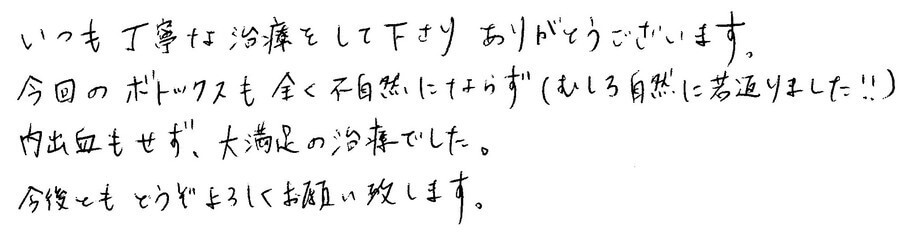 いつも丁寧な治療をして下さり ありがとうございます。
今回のボトックスも全く不自然にならず(むしろ自然に若返りました!!)
内出血もせず、大満足の治療でした。
今後ともどうぞよろしくお願い致します。